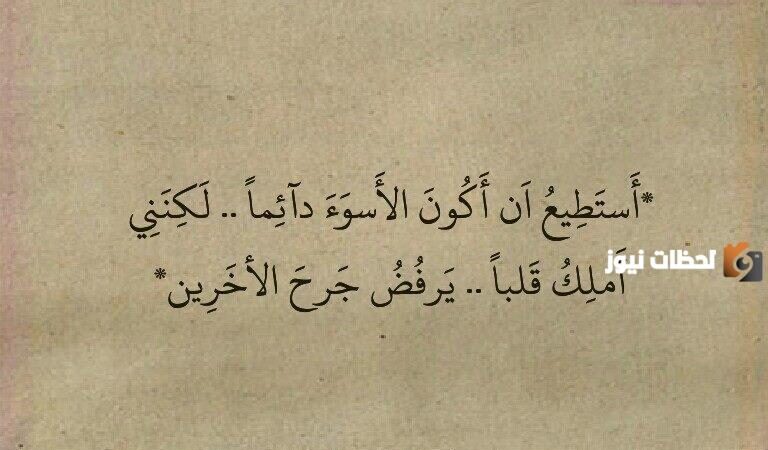 *أَستَطِيعُ اَن أَكُونَ الأَسوَءَ دآئِماً .. لَكِنَنِي
اَملِكُ قَلباً .. يَرفُضُ جَرحَ الأخَرِين*
لحظات نيوز